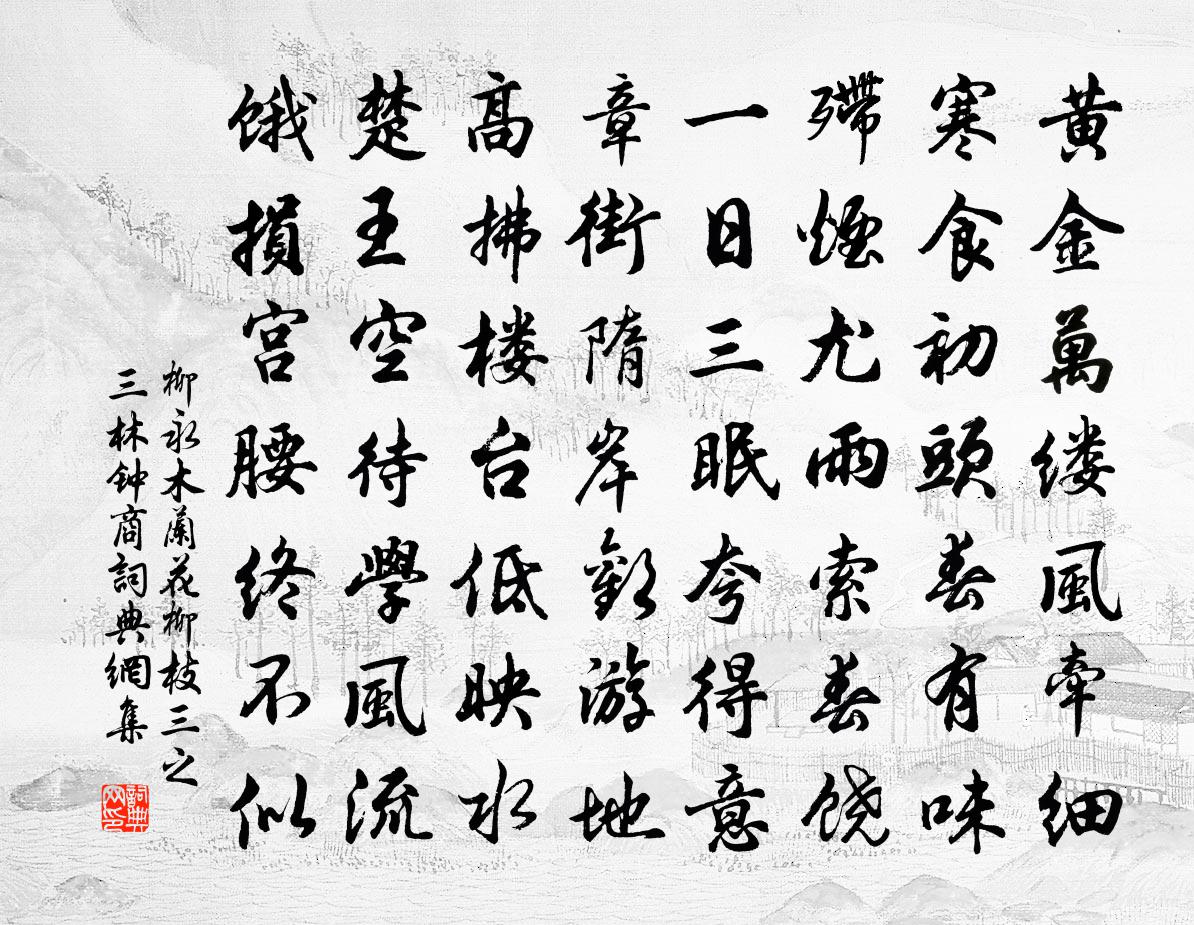 黄金萬缕風牽细
寒食初頭春有味
殢煙尤雨索春饶
一日三眠夸得意
章街隋岸歡游地
高拂楼台低映水
楚王空待學風流
饿損宫腰终不似
柳永木蘭花柳枝三之
三林钟商詞典網集
詞典网印